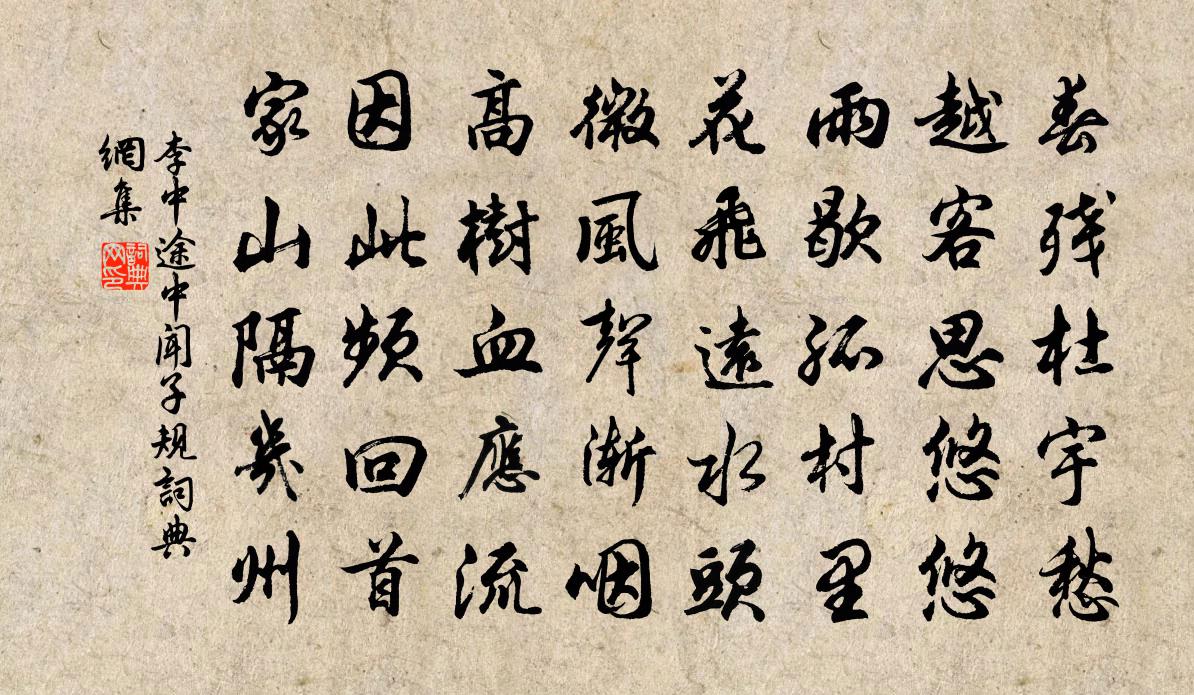 春殘杜宇愁
越客思悠悠
雨歇孤村里
花飛遠水頭
微風聲漸咽
高樹血應流
因此頻回首
家山隔幾州
李中途中聞子規詞典
網集
詞典網印